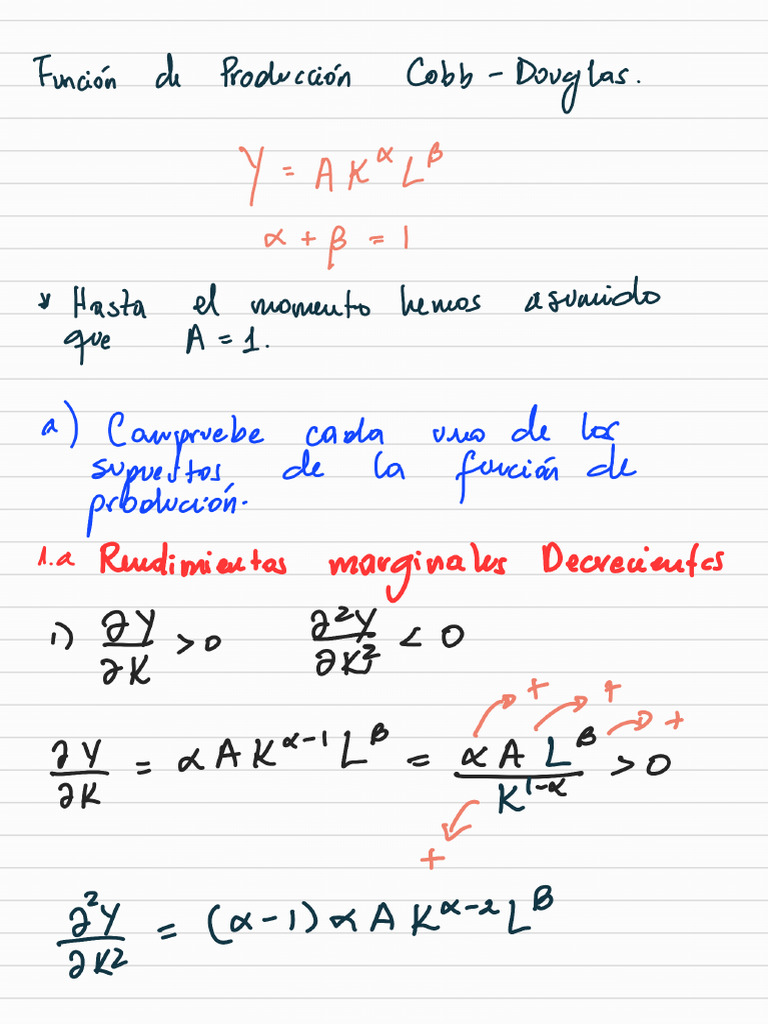 Función de Producción Cobb-Douglas.
Y = A K^α L^β
α + β = 1
* Hasta el momento hemos asumido
que A = 1.
a) Compruebe cada uno de los
supuestos de la función de
produción.
1.a Rendimientos marginales Decrecientes
1) ∂Y/∂K > 0 ∂²Y/∂K² < 0
∂Y/∂K = α A K^(α-1) L^β = α A L^β / K^(1-α) > 0
+ + +
+
∂²Y/∂K² = (α-1) α A K^(α-2) L^β